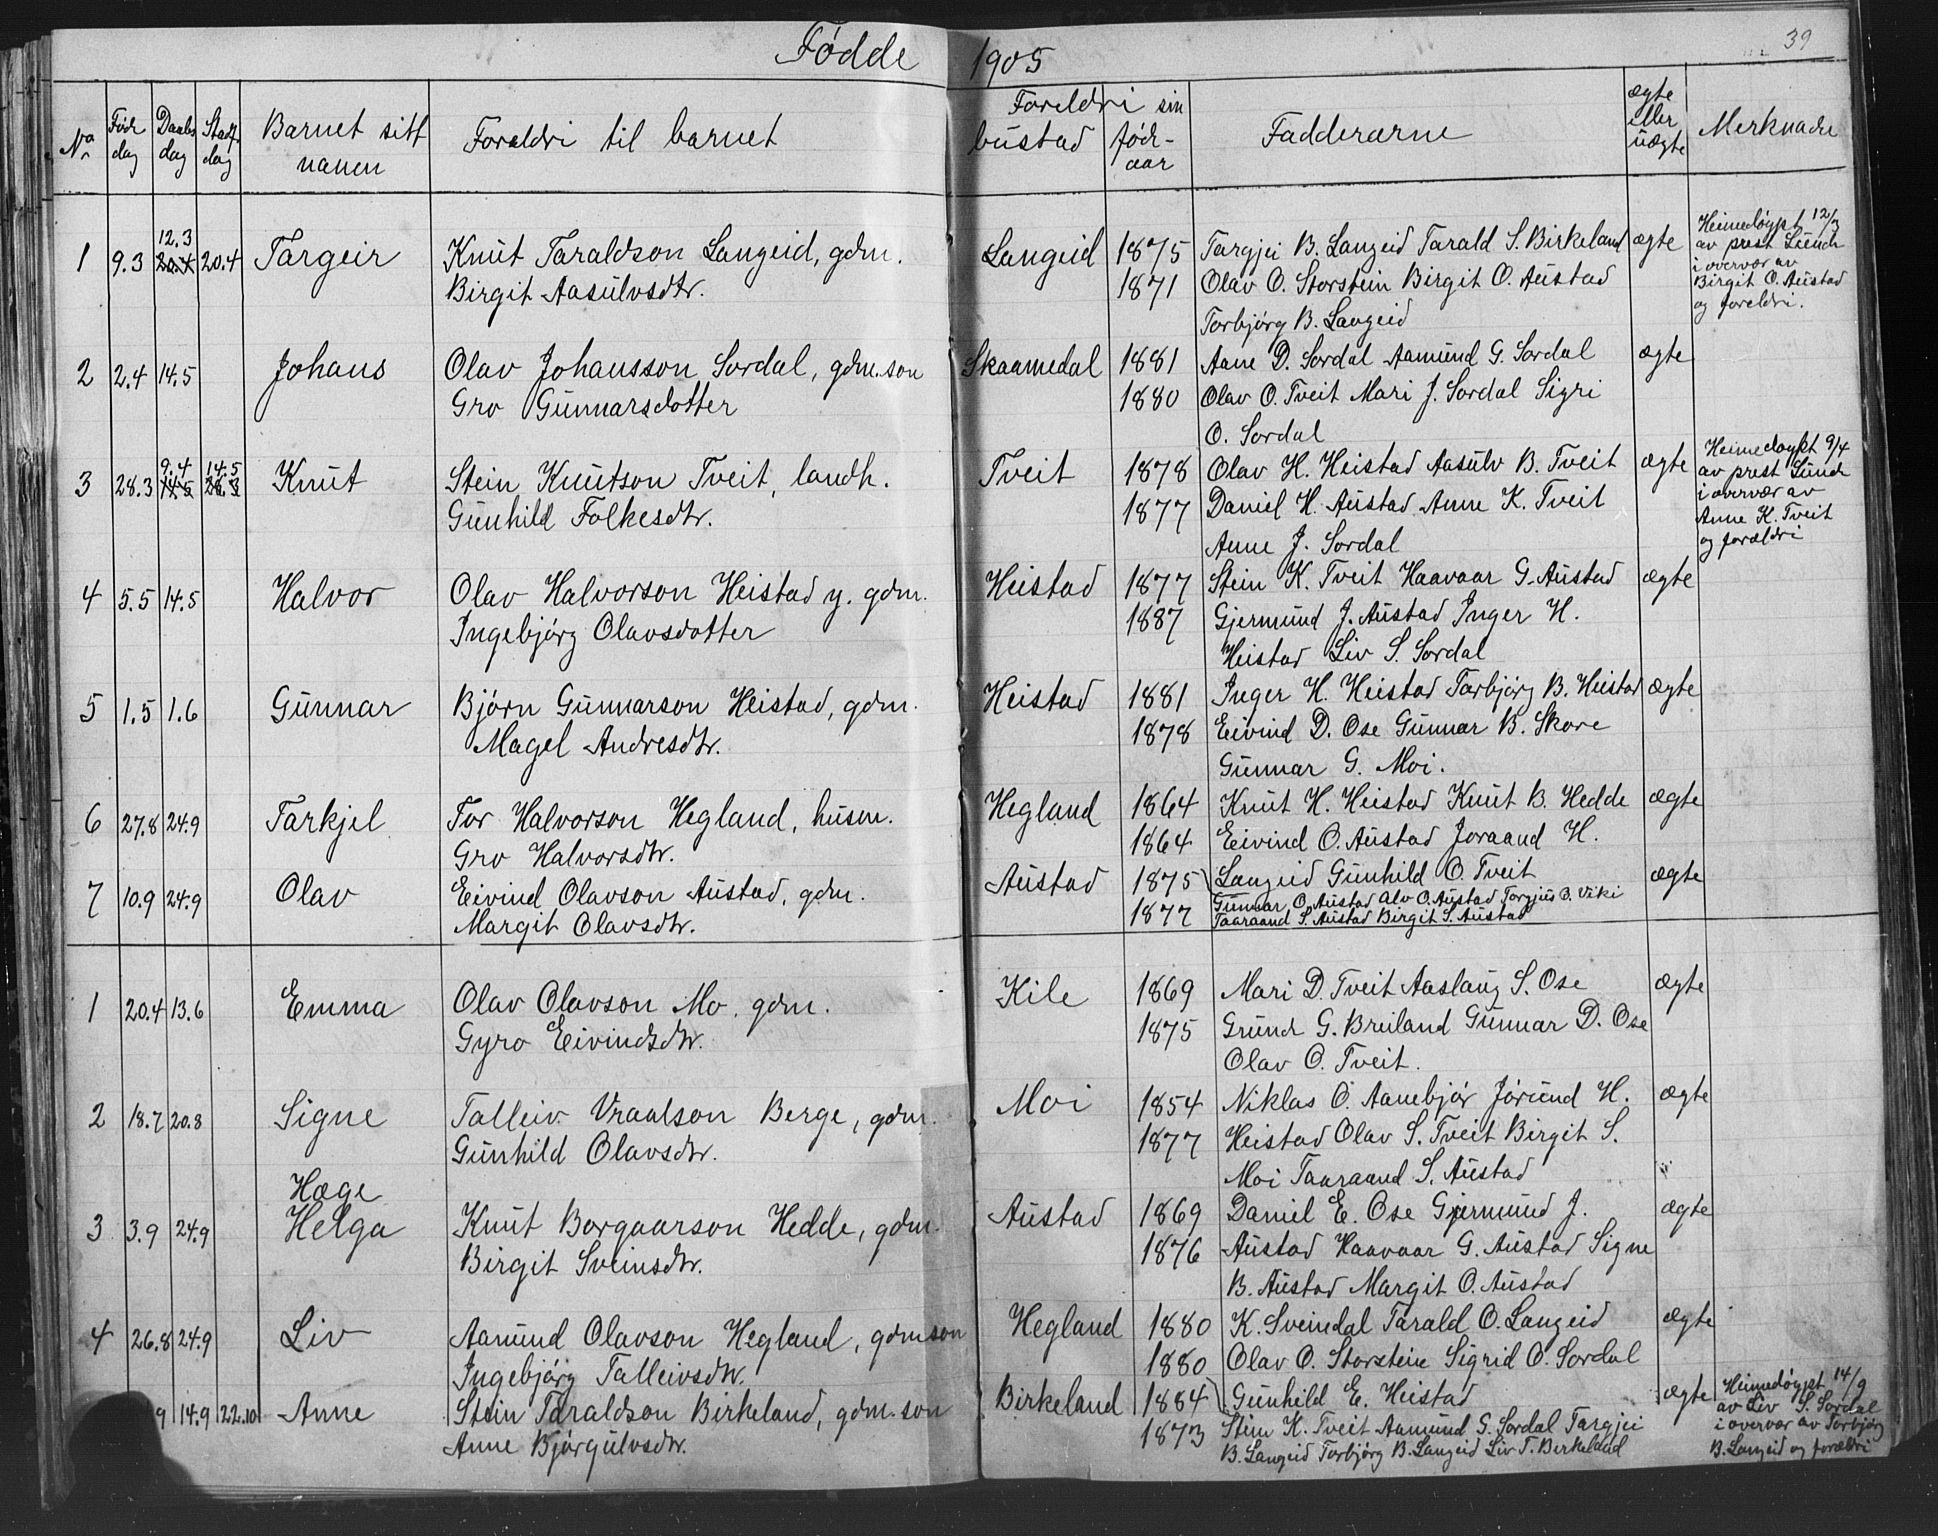 Fødde 1905
39
No Fødr dag Daabs dag Stadf. dag Barnet sitt namn Foreldri til barnet Foreldri sin bustad fødr-aar Fadderarne ægte eller uægte Merknadre
1 9.3 12.3 20.4 20.4 Targeir Knut Taraldson Langeid, gdm. Langeid 1875 Targjei B. Langeid Tarald S. Birkeland ægte Heimedøypt 12/3
Birgit Aasulvsdtr. 1871 Olav O. Storstein Birgit O. Austad av prest Lunde
Torbjørg B. Langeid i overvær av
Birgit O. Austad
og foreldri.
2 2.4 14.5 Johans Olav Johansson Sordal, gdm.son Skaamedal 1881 Aane D. Sordal Aamund G. Sordal ægte
Gro Gunnarsdotter 1880 Olav O. Tveit Mari J. Sordal Sigri
O. Sordal
3 28.3 9.4 14.5 14.5 Knut Stein Knutson Tveit, landh. Tveit 1878 Olav H. Heistad Aasulv B. Tveit ægte Heimedøypt 9/4
Gunhild Folkesdtr. 1877 Daniel H. Austad Anne K. Tveit av prest Lunde
Anne J. Sordal i overvær av
Anne K. Tveit
og forældri
4 5.5 14.5 Halvor Olav Halvorson Heistad y. gdm. Heistad 1877 Stein K. Tveit Haavaar G. Austad ægte
Ingebjørg Olavsdotter 1887 Gjermund J. Austad Inger H.
Heistad Liv S. Sordal
5 1.5 1.6 Gunnar Bjørn Gunnarson Heistad, gdm. Heistad 1881 Inger H. Heistad Torbjørg B. Heistad ægte
Magel Andresdtr. 1878 Eivind D. Ose Gunnar B. Skore
Gunnar G. Moi.
6 27.8 24.9 Tarkjel Tor Halvorson Hegland, husm. Hegland 1864 Knut H. Heistad Knut B. Hedde ægte
Gro Halvorsdtr. 1864 Eivind O. Austad Joraand H.
Langeid Gunhild O. Tveit
7 10.9 24.9 Olav Eivind Olavson Austad, gdm. Austad 1875 Gunnar O. Austad Alv O. Austad Torgjus O. Viki ægte
Margit Olavsdtr. 1877 Taaraand S. Austad Birgit S. Austad
1 20.4 13.6 Emma Olav Olavson Mo, gdm. Kile 1869 Mari D. Tveit Aaslaug S. Ose ægte
Gyro Eivindsdtr. 1875 Grund G. Breiland Gunnar D. Ose
Olav O. Tveit.
2 18.7 20.8 Signe Talleiv Vraalson Berge, gdm. Moi 1854 Niklas O. Aanebjør Jørund H. ægte
Gunhild Olavsdtr. 1877 Heistad Olav S. Tveit Birgit S.
Moi Taaraand S. Austad
Hæge
3 3.9 24.9 Helga Knut Borgaarson Hedde, gdm. Austad 1869 Daniel E. Ose Gjermund J. ægte
Birgit Sveinsdtr. 1876 Austad Haavaar G. Austad Signe
B. Austad Margit O. Austad
4 26.8 24.9 Liv Aamund Olavson Hegland, gdmson Hegland 1880 K. Sveindal Tarald O. Langeid ægte
Ingebjørg Talleivsdtr. 1880 Olav O. Storstein Sigrid O. Sordal
Gunhild E. Heistad
9 14.9 22.10 Anne Stein Taraldson Birkeland, gdm. son Birkeland 1884 Stein K. Tveit Aamund G. Sordal Targjei ægte Heimedøypt 14/9
Anne Bjørgulvsdtr. 1873 B. Langeid Torbjørg B. Langeid Liv T. Birkeland av Liv S. Sordal
i overvær av Torbjørg
B. Langeid og forældri